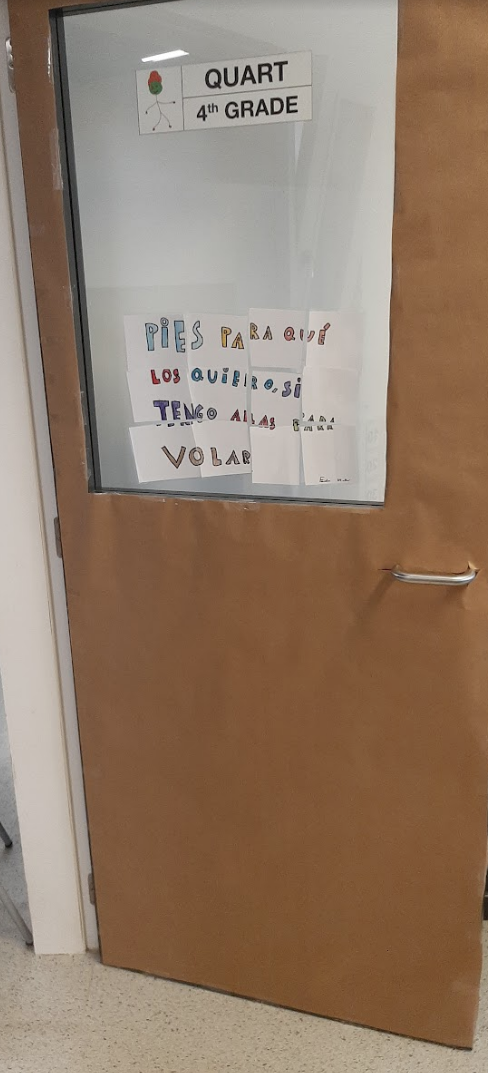 QUART
4th GRADE
PiES PARA QUÉ
LOS QUiERO, Si
TENGO ALAS PARA
VOLAR